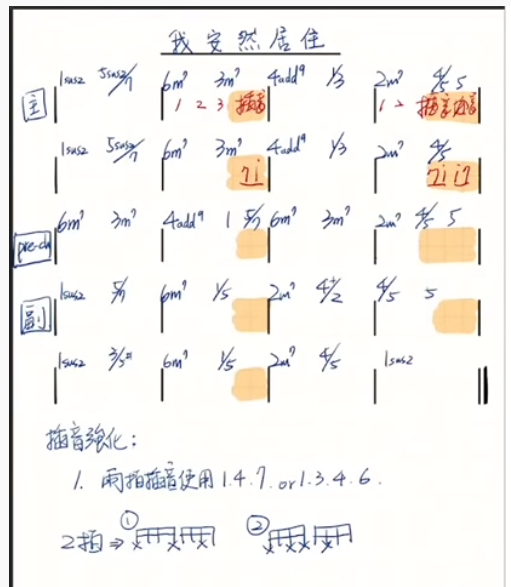 我安然居住
主 1sus2 5sus2/7 6m7 3m7 4add9 1/3 2m7 4/5 5
1 2 3 插音 1 2 插音插音
1sus2 5sus2/7 6m7 3m7 4add9 1/3 2m7 4/5
7i 7i i7
pre-ch 6m7 3m7 4add9 1 5/7 6m7 3m7 2m7 4/5 5
副 1sus2 5/7 6m7 1/5 2m7 4/2 4/5 5
1sus2 3/5# 6m7 1/5 2m7 4/5 1sus2
插音強化:
1. 兩拍插音使用1.4.7.or1.3.4.6.
2拍⇒① ②